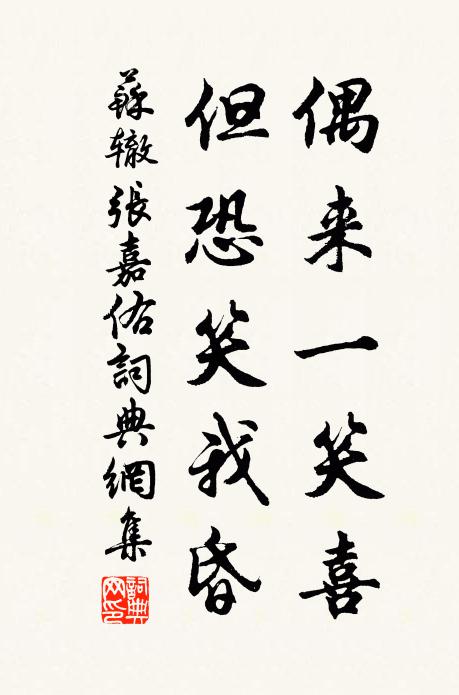 偶来一笑喜
但恐笑我昏
蘇辙張嘉佑詞典網集
詞典網印